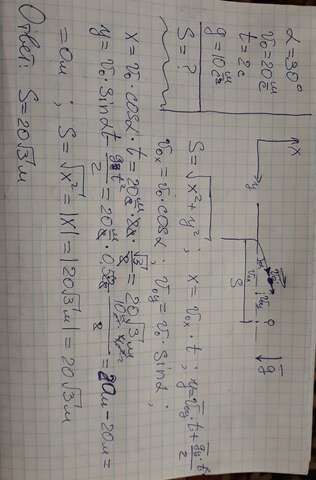 α=30°
v₀=20 м/с
t=2c
g=10 м/c²
S=?
x
y
S
g
S=√(x²+y²); x=v₀ₓ·t; y=v₀y·t+gy·t²/2
v₀ₓ=v₀·cosα; v₀y=v₀·sinα;
x=v₀·cosα·t=20 м/с·2с·√3/2=20√3 м
y=v₀·sinαt-gt²/2=20 м/с·0,5·2с-10 м/с²·4с²/2=20м-20м=
=0м; S=√x²=|x|=|20√3м|=20√3м
Ответ: S=20√3 м